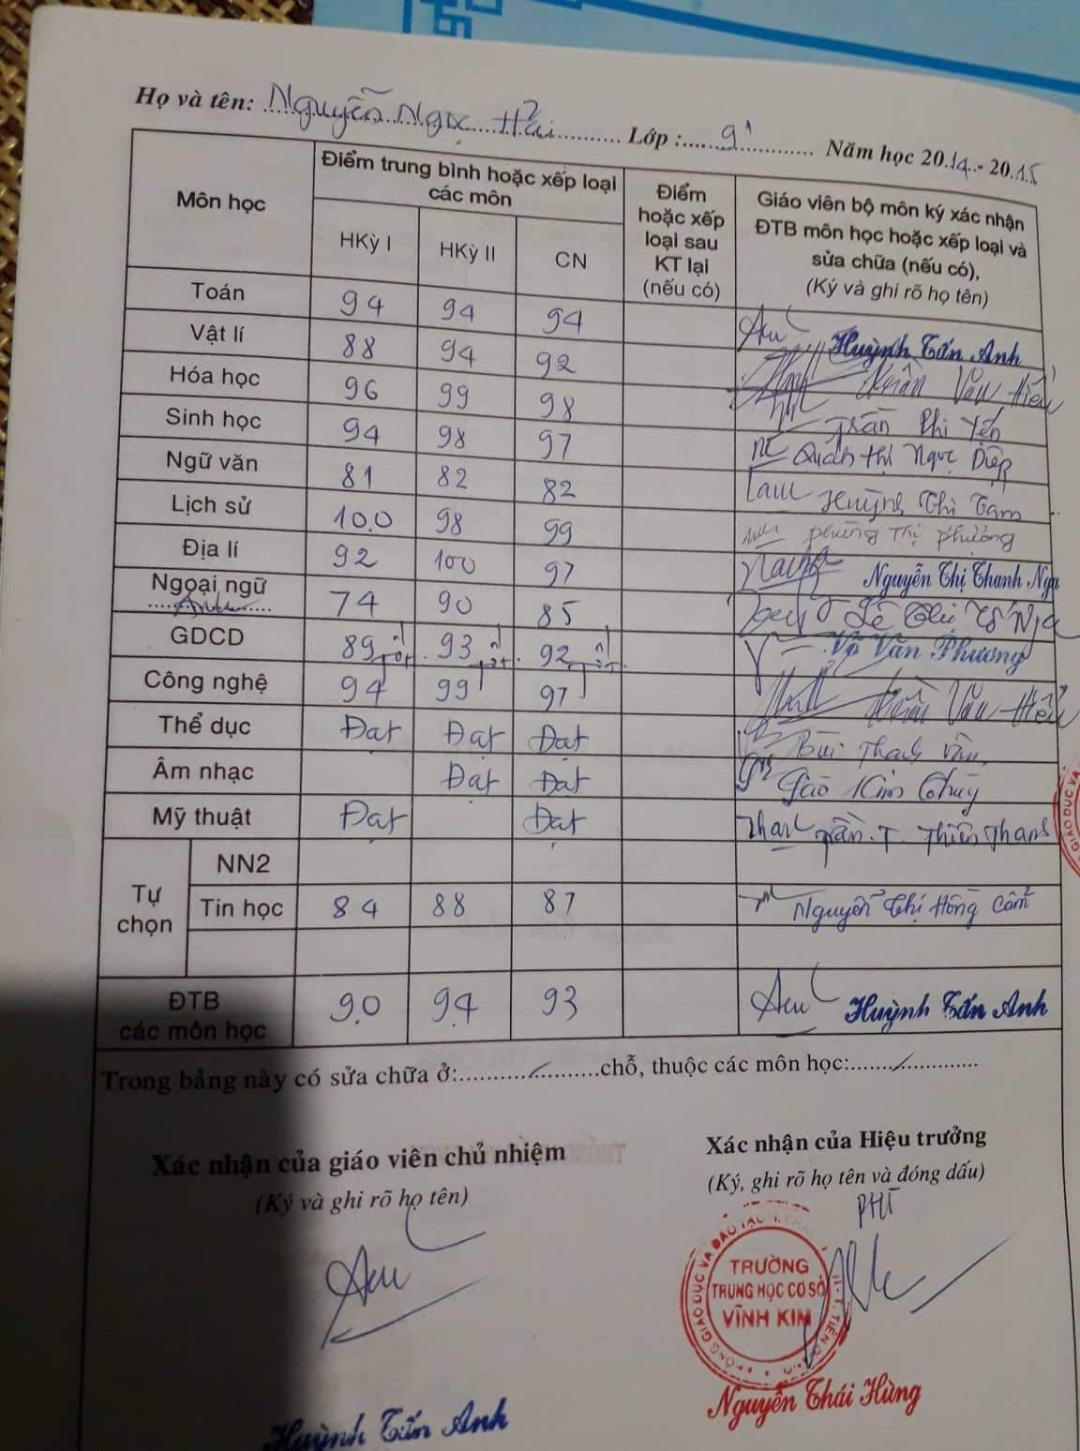 Họ và tên: Nguyễn Ngọc Hải Lớp : 9¹ Năm học 2014 - 2015
Môn học
Điểm trung bình hoặc xếp loại các môn
HKỳ I HKỳ II CN
Điểm hoặc xếp loại sau KT lại (nếu có)
Giáo viên bộ môn ký xác nhận ĐTB môn học hoặc xếp loại và sửa chữa (nếu có), (Ký và ghi rõ họ tên)
Toán 94 94 94 Huỳnh Tấn Anh
Vật lí 88 94 92 Văn Hiếu
Hóa học 96 99 98 Trần Phi Yến
Sinh học 94 98 97 Quách Thị Ngọc Diệp
Ngữ văn 81 82 82 Huỳnh Thị Tám
Lịch sử 10.0 98 99 Phùng Thị Phượng
Địa lí 92 100 97 Nguyễn Thị Thanh Nga
Ngoại ngữ 74 90 85 Lê Thị Tố Nga
Anh
GDCD 89 Tốt 93 Tốt 92 Tốt Võ Văn Phương
Công nghệ 94 99 97 Văn Hiếu
Thể dục Đạt Đạt Đạt Bùi Thanh
Âm nhạc Đạt Đạt Kim Thùy
Mỹ thuật Đạt Đạt Trần.T. Thiên Thanh
Tự chọn
NN2
Tin học 84 88 87 Nguyễn Thị Hồng Cẩm
ĐTB các môn học 9.0 9.4 93 Huỳnh Tấn Anh
Trong bảng này có sửa chữa ở: / chỗ, thuộc các môn học: /
Xác nhận của giáo viên chủ nhiệm
(Ký và ghi rõ họ tên)
Huỳnh Tấn Anh
Xác nhận của Hiệu trưởng
(Ký, ghi rõ họ tên và đóng dấu)
PHT
TRƯỜNG
TRUNG HỌC CƠ SỞ
VĨNH KIM
Nguyễn Thái Hùng